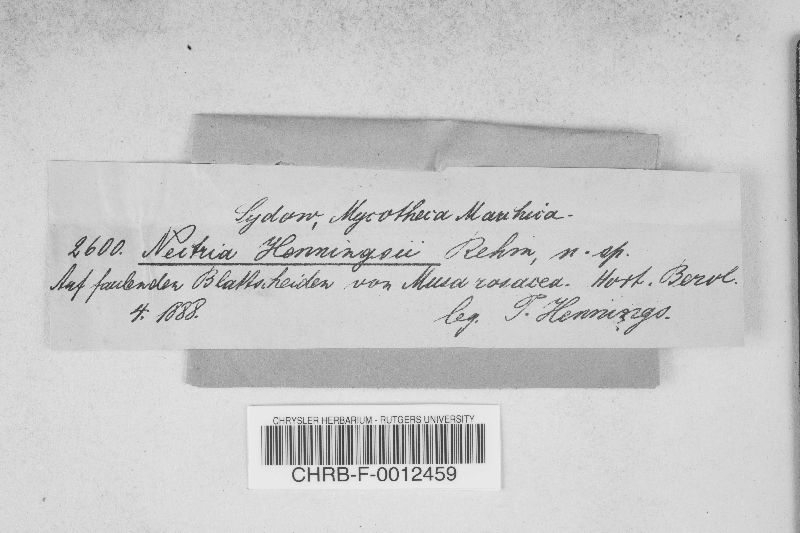 Sydow, Mycotheca Marchica.
2600. Nectria Henningsii Rehm, n. sp.
Auf faulenden Blattscheiden von Musa rosacea. Hort. Berol.
4. 1888. leg. P. Hennings.
CHRYSLER HERBARIUM - RUTGERS UNIVERSITY
CHRB-F-0012459